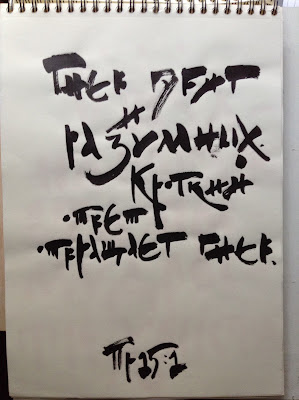 ГНЕВ ГУБИТ
И
РАЗУМНЫХ.
КРОТКИЙ
ОТВЕТ
ОТВРАЩАЕТ ГНЕВ.
ПР 15:1